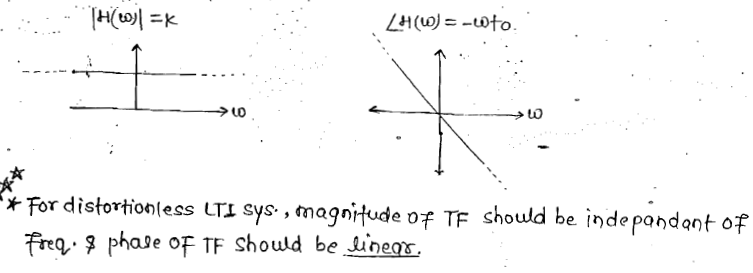 |H(ω)| = K
∠H(ω) = -ωto.
ω
ω
* For distortionless LTI sys., magnitude of TF should be indepandant of
freq. & phase of TF should be linear.